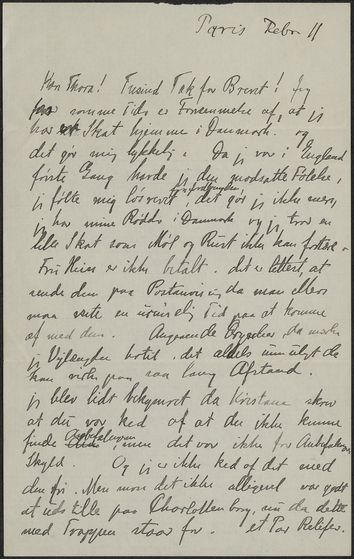 Paris Febr 11
Kære Thora! Tusind Tak for Brevet! Jeg
har somme Tider Fornemmelse af, at jeg
har et Skat hjemme i Danmark. og
det gør mig lykkelig. Da jeg var i England
første Gang havde jeg den modsatte Følelse,
jeg følte mig løsrevet fra det gør jeg ikke mere,
jeg har mine Rødder i Danmark og jeg tror en
lille Skat som Møl og Rust ikke kan fortære.
Fru Heise er ikke betalt. det er lettest, at
sende den paa Postanvisning da man ellers
maa vente en urimelig Tid paa at komme
af med den. Angaaende da
jeg . det er aldeles umuligt at
kan paa saa lang Afstand.
jeg blev lidt bekymret da Kirstane skrev
at du var ked af at du ikke kunne
finde Anbefalingen, men det var ikke for Anbefalingens
Skyld. Og jeg er ikke ked af det med
den fri. Men mon det ikke alligevel var godt
at udstille paa Charlottenborg, nu da dette
med Trappen staar for. et Par Reliefer.